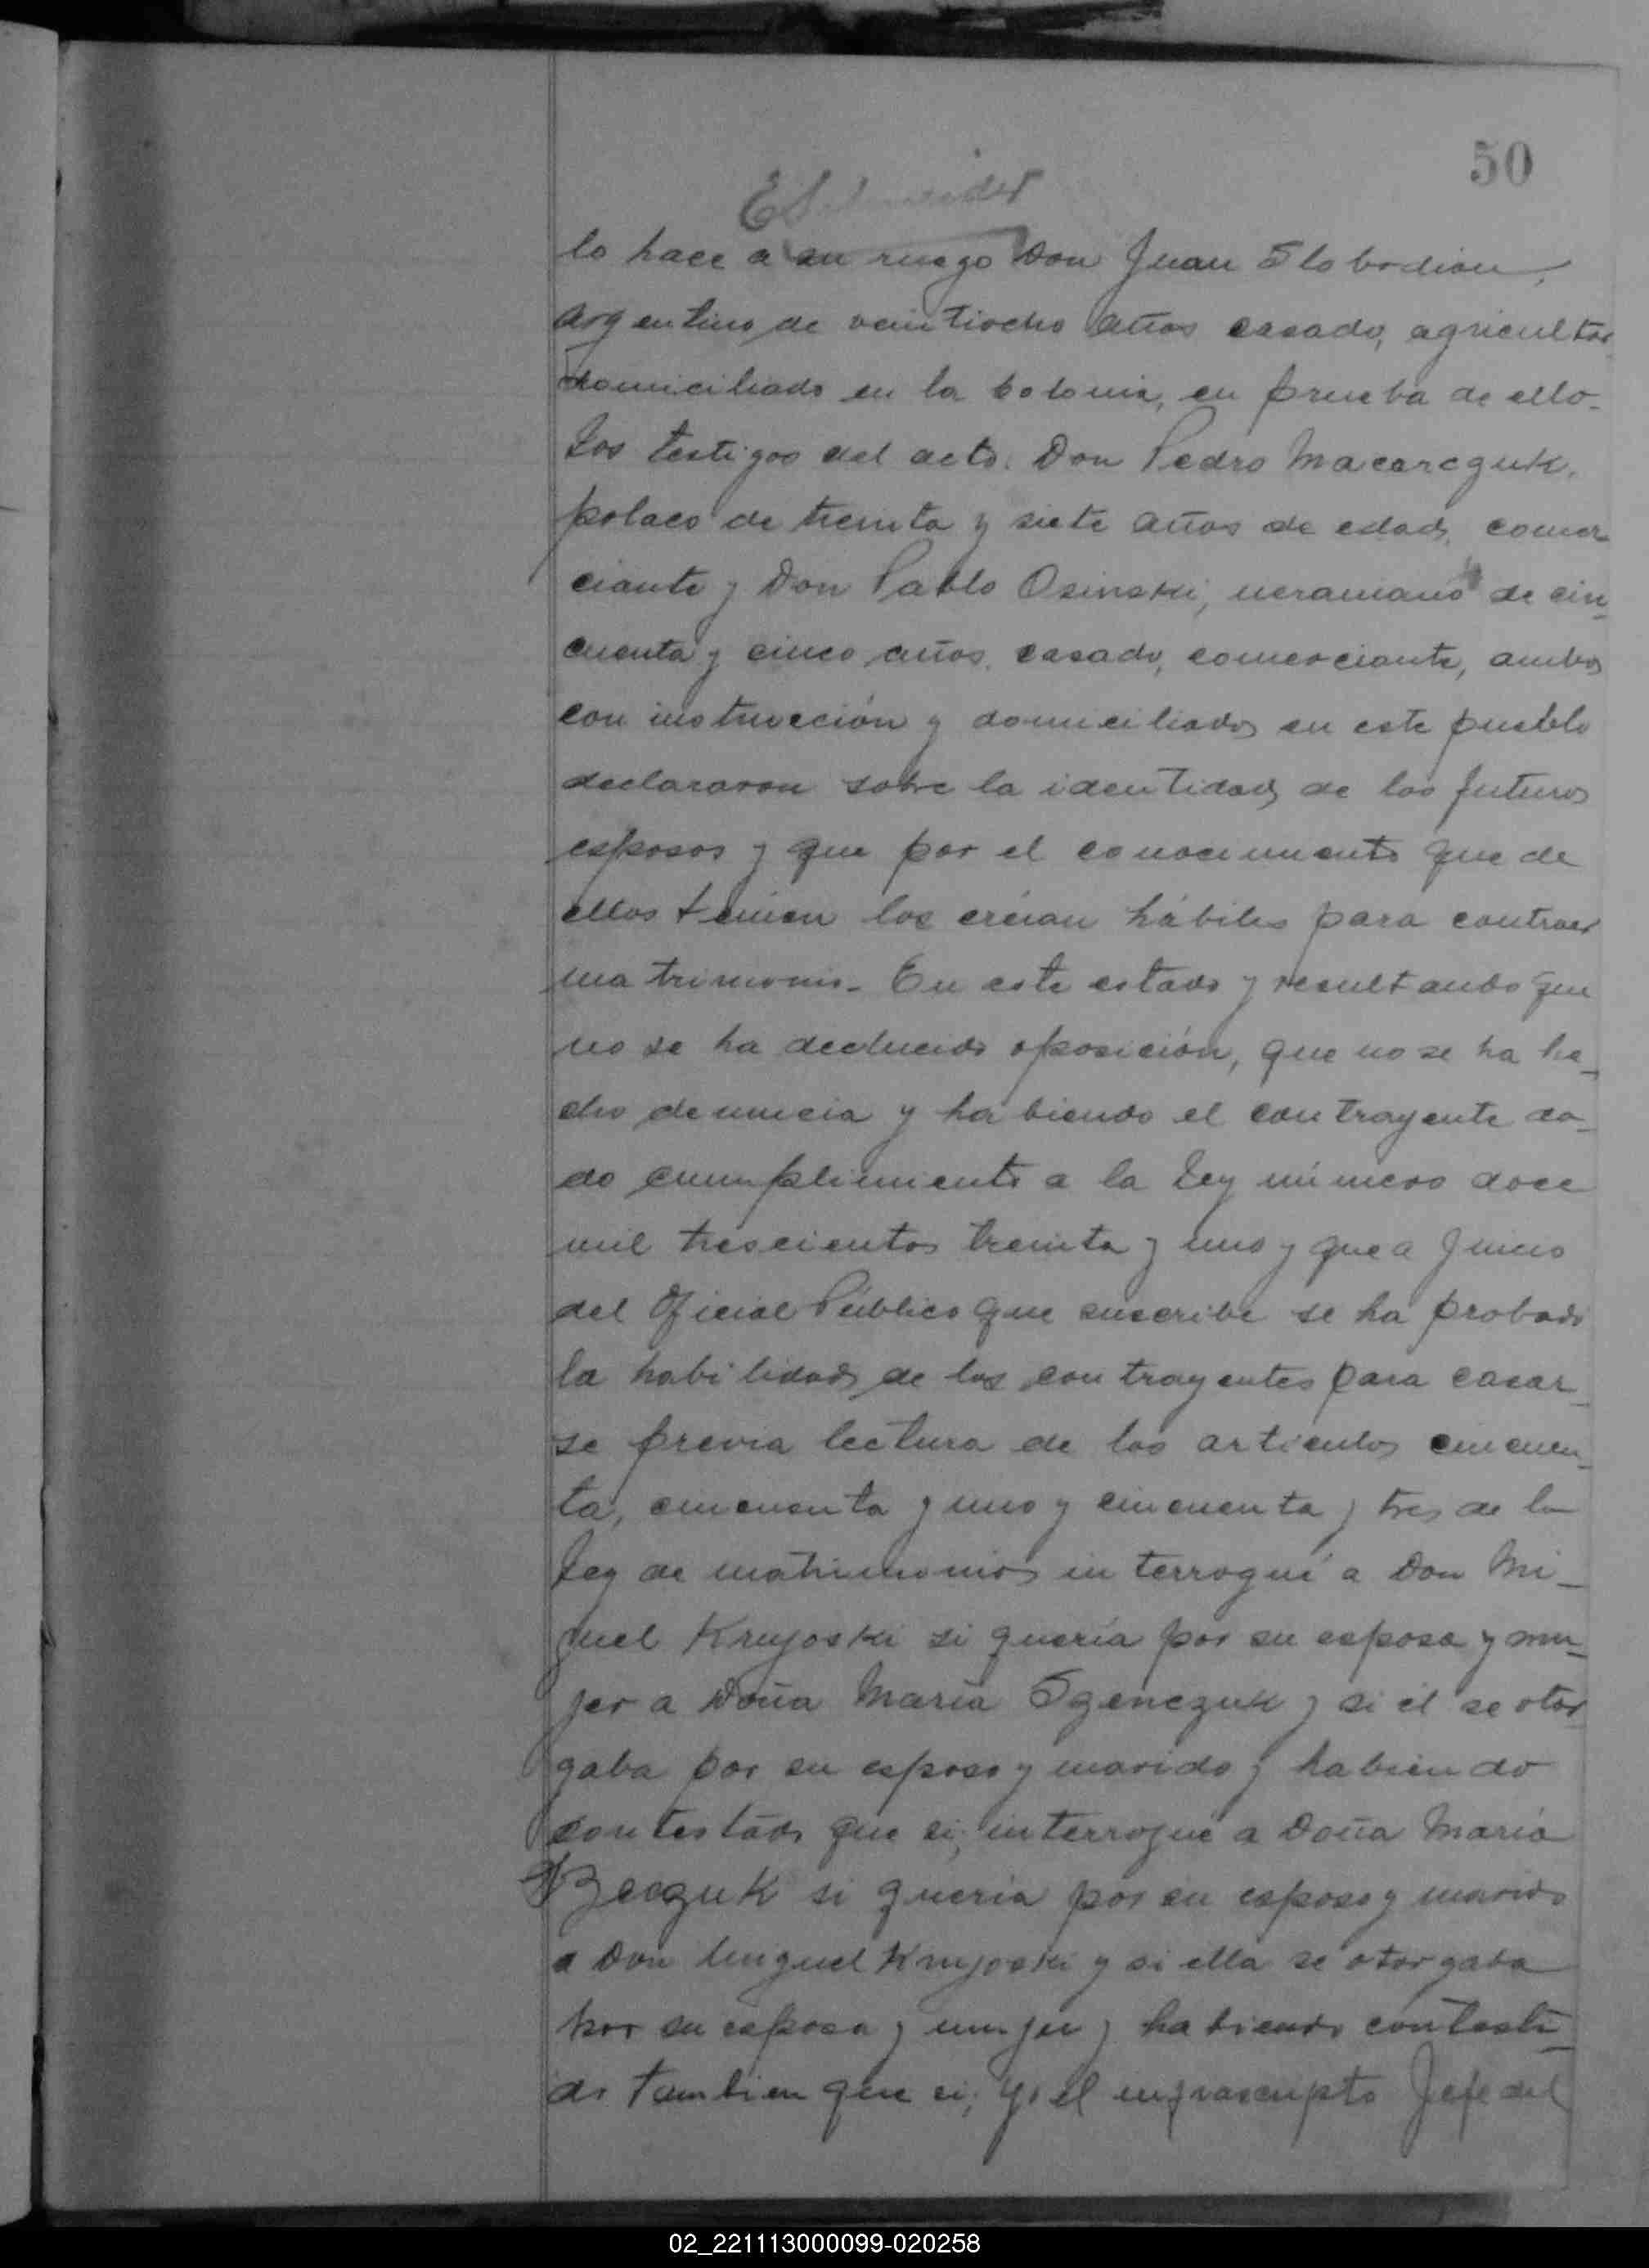 50
lo hace a su ruego Don Juan Slobodian,
argentino de veintiocho años casado, agricultor
domiciliado en la colonia, en prueba de ello-
Los testigos del acto: Don Pedro Macarczuk,
polaco de treinta y siete años de edad, comer-
ciante y Don Pablo Osinski, ucraniano de cin-
cuenta y cinco años, casado, comerciante, ambos
con instrucción y domiciliados en este pueblo
declararon sobre la identidad de los futuros
esposos y que por el conocimiento que de
ellos tenían los creían hábiles para contraer
matrimonio- En este estado y resultando que
no se ha deducido oposición, que no se ha he-
cho denuncia y habiendo el contrayente da-
do cumplimiento a la Ley número doce
mil trescientos treinta y uno y que a juicio
del Oficial Público que suscribe se ha probado
la habilidad de los contrayentes para casar-
se previa lectura de los artículos cincuen-
ta, cincuenta y uno y cincuenta y tres de la
Ley de matrimonios interrogué a Don Mi-
guel Krujoski si quería por su esposa y mu-
jer a Doña María Szenczuk y si él se otor-
gaba por su esposo y marido y habiendo
contestado que si, interrogué a Doña María
si quería por su esposo y marido
a Don Miguel Krujoski y si ella se otorgaba
por su esposa y mujer y habiendo contesta-
do tambien que si; yo el infrascripto Jefe del
02_221113000099-020258